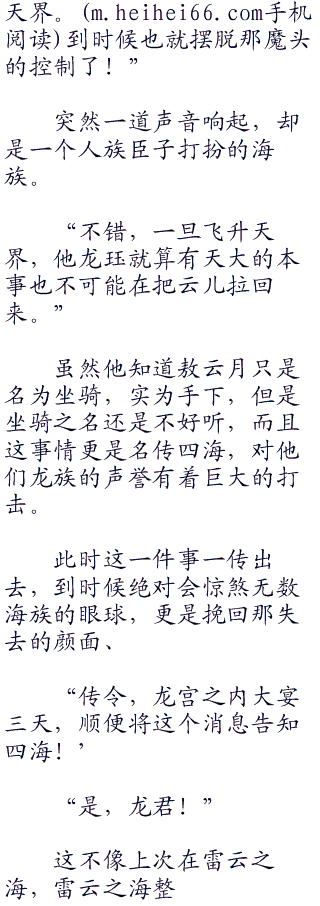 天界。(m.heihei66.com手机
阅读)到时候也就摆脱那魔头
的控制了！”
突然一道声音响起，却
是一个人族臣子打扮的海
族。
“不错，一旦飞升天
界，他龙珏就算有天大的本
事也不可能在把云儿拉回
来。”
虽然他知道敖云月只是
名为坐骑，实为手下，但是
坐骑之名还是不好听，而且
这事情更是名传四海，对他
们龙族的声誉有着巨大的打
击。
此时这一件事一传出
去，到时候绝对会惊煞无数
海族的眼球，更是挽回那失
去的颜面、
“传令，龙宫之内大宴
三天，顺便将这个消息告知
四海！’
“是，龙君！”
这不像上次在雷云之
海，雷云之海整